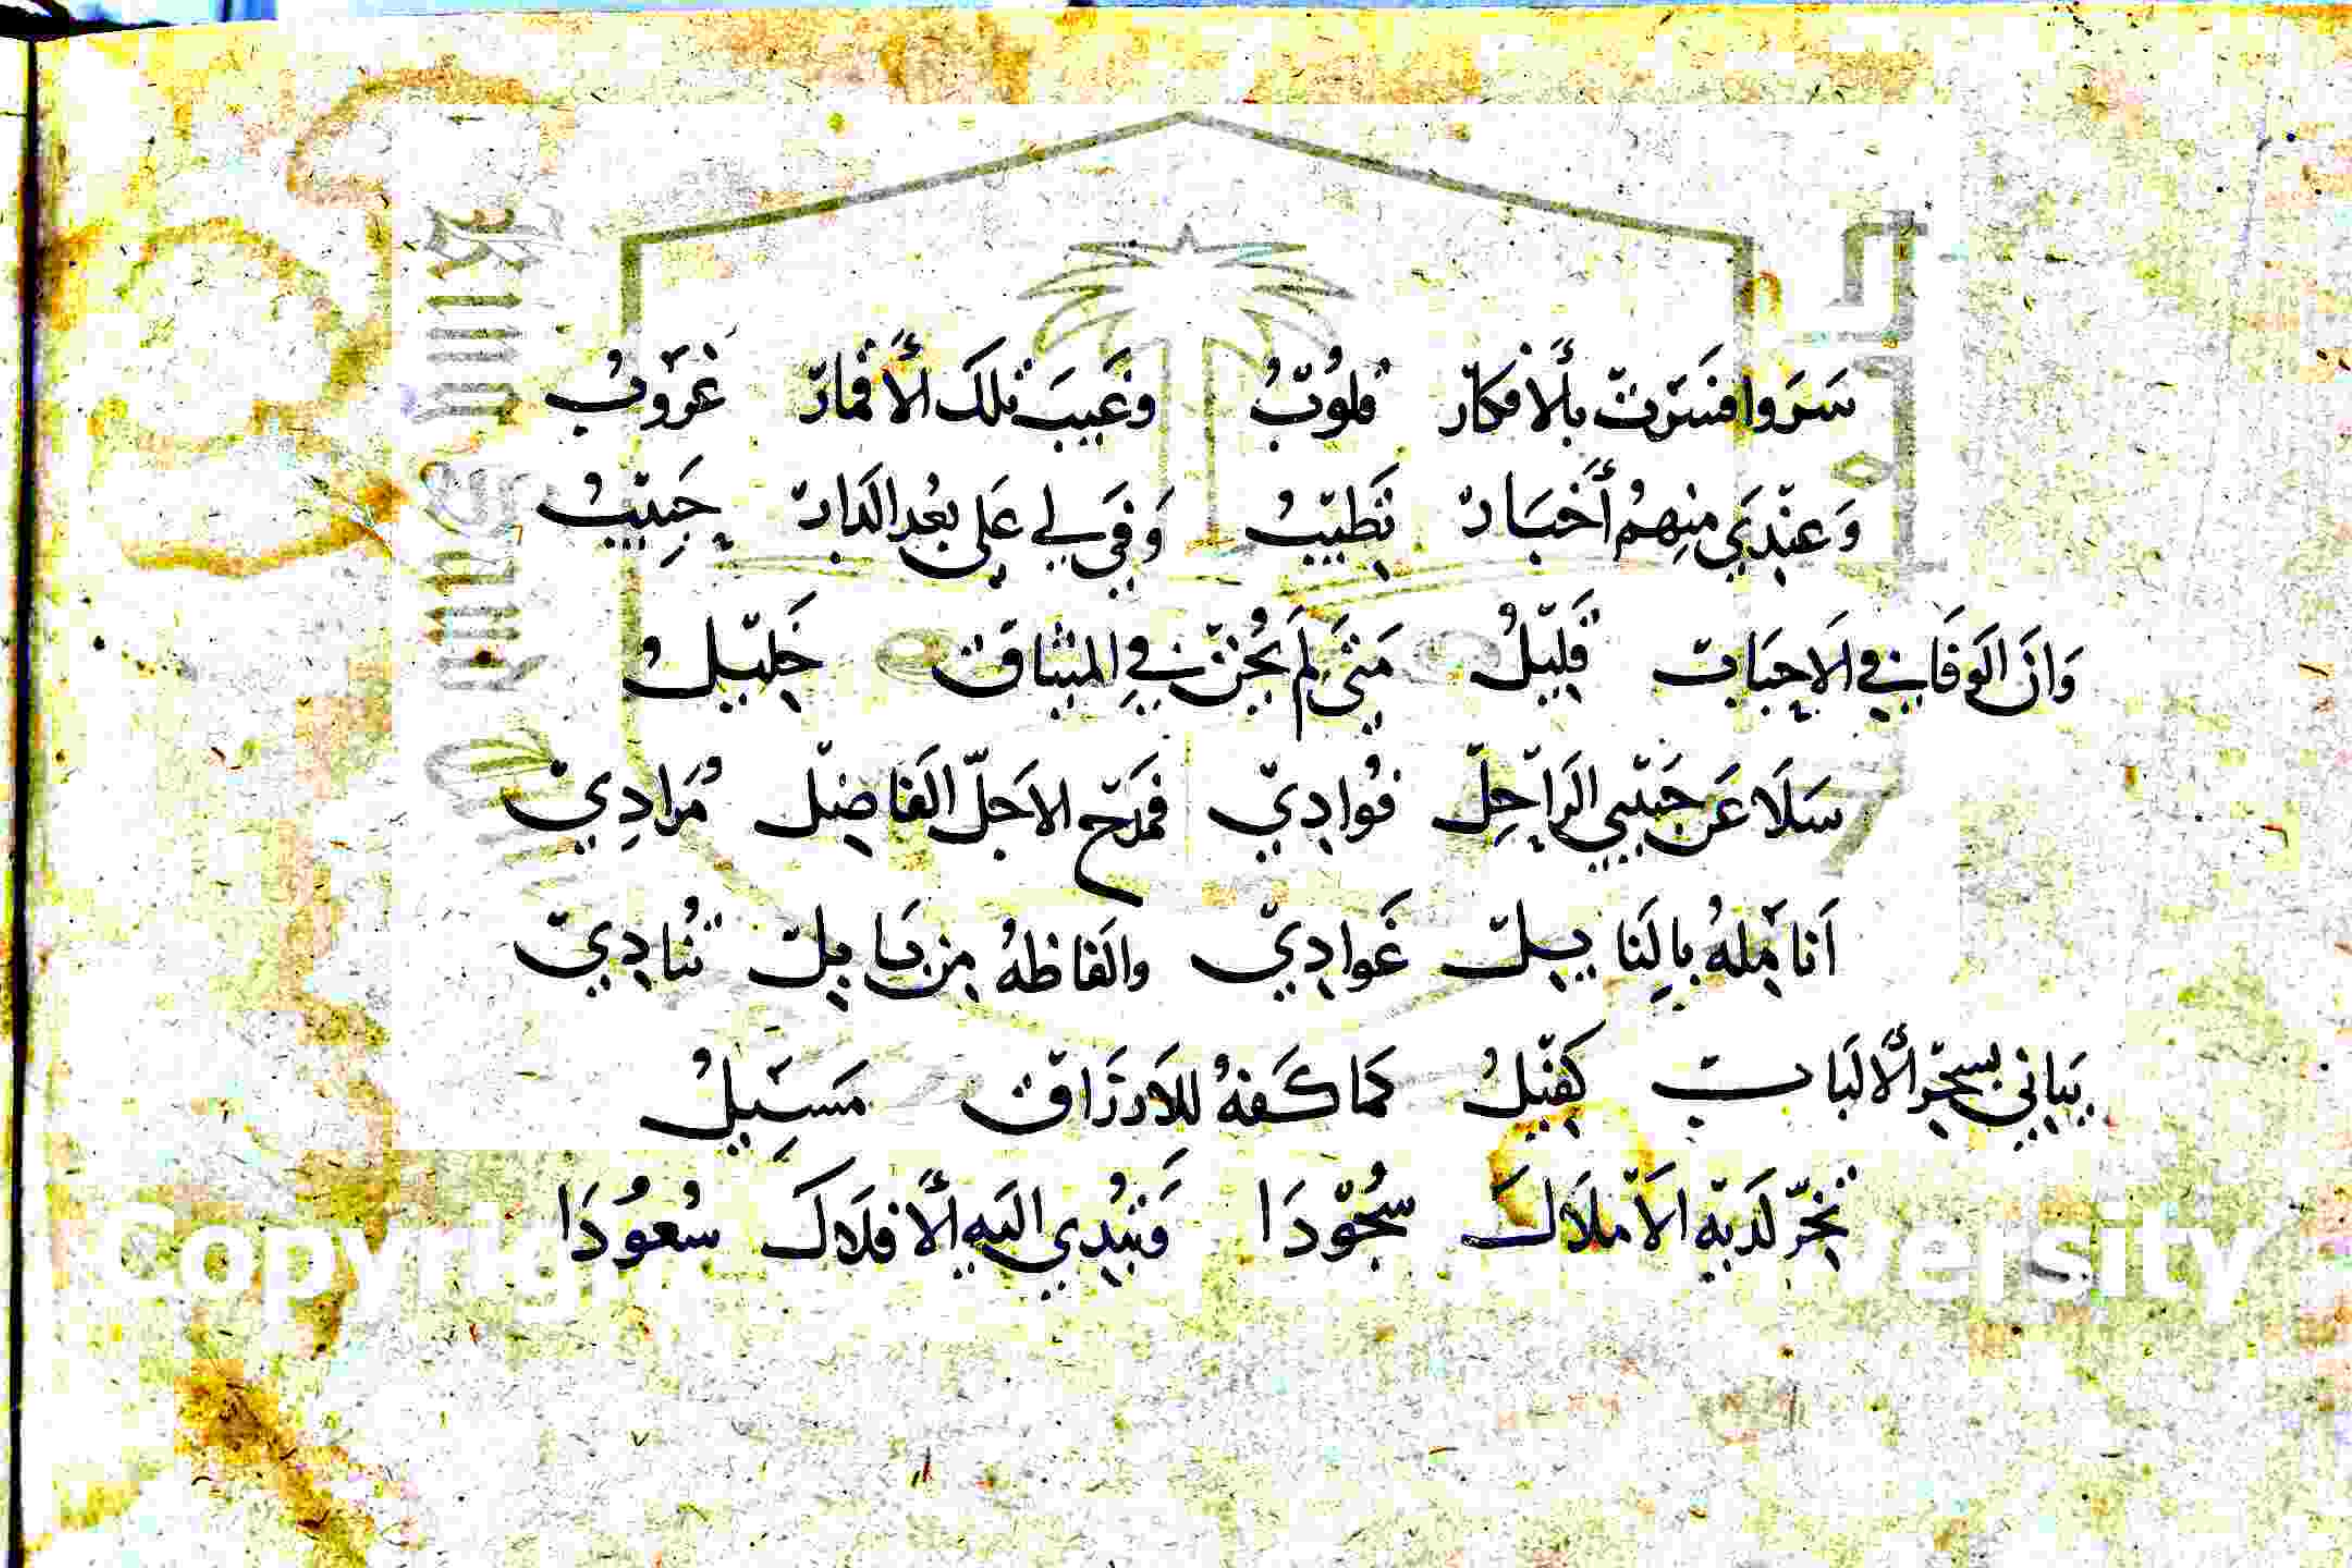 سَرَوا فَسَرَتْ بِالأَفكار قُلوُبٌ وغَيبَ تلكَ الأَقمارْ غرَوبُ
وَعِنْدِي مِنهمُ أَخبَارْ تَطيْبُ وَفيَ لي عَلى بُعدِ الدَارْ حَبِيْبُ
وَانَ الوَفَا في الاحبَابْ قَلِيْلُ مَتىَ لَم يَخُنْ في الميثاقْ خَلِيْلُ
سَلَا عَن حَبْيبي الرَاحِلْ فُوادِيْ فمَدْح الاجَلّ الفَاضِلْ مُرَادِيْ
اَنامِلهُ بالنَايِلْ غَوادِيْ والفَاظهُ مِن بَابِلْ تُنادِيْ
بَيَاني بسِحْرِ الأَلبَابْ كَفَيْلُ كَما كَفهُ للاَرزَاقْ مَسَيِلُ
تخرّ لَديْهِ الاَمْلَاكَ سُجُوْدَا وَتبُدِي اليَهِ الأَفلَاكَ سُعُوُدَا
Copyrig versity
King Sau